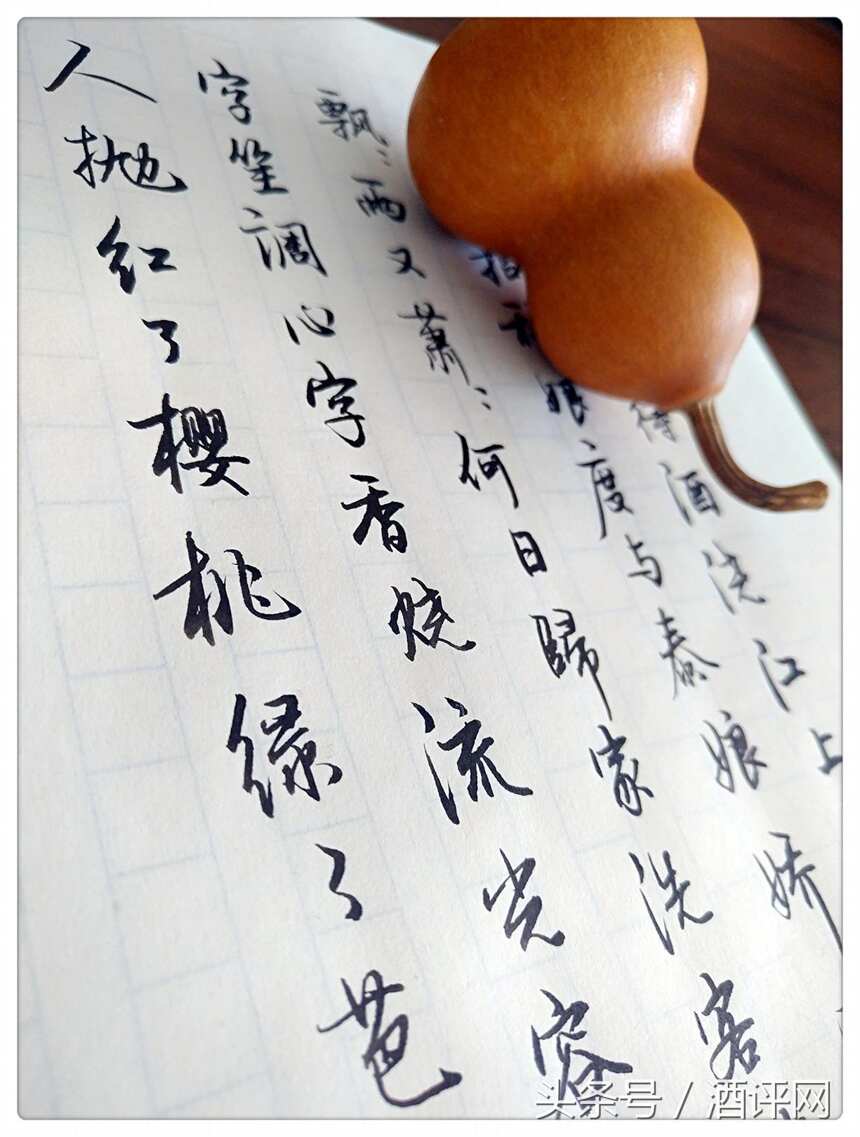 待酒浇江上
招秋娘度与泰娘娇
飘〻雨又萧〻何日歸家洗客
字笙调心字香烧流光容
人抛红了樱桃绿了芭
头条号 / 酒评网